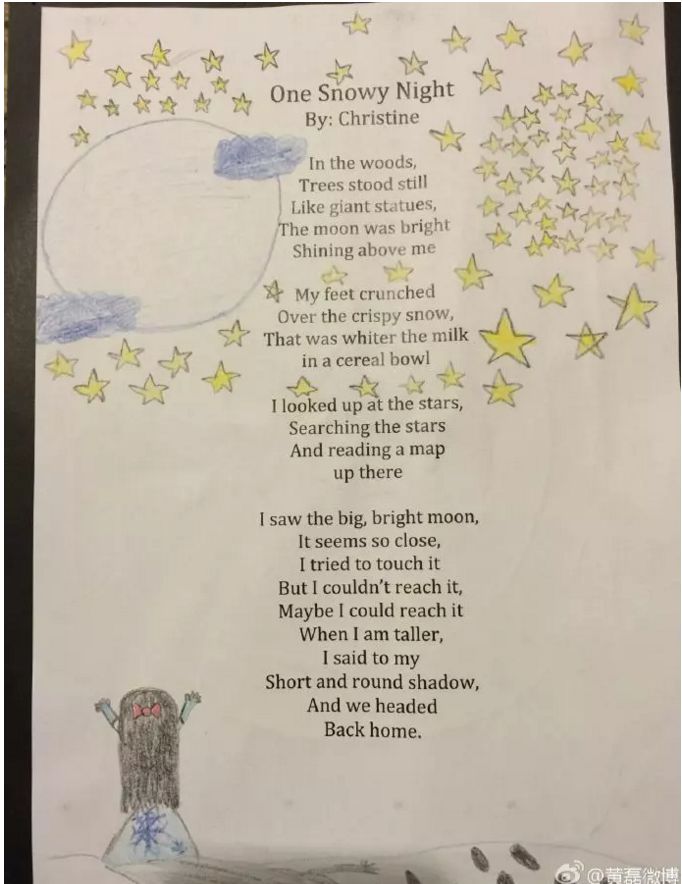 One Snowy Night
By: Christine
In the woods,
Trees stood still
Like giant statues,
The moon was bright
Shining above me
My feet crunched
Over the crispy snow,
That was whiter the milk
in a cereal bowl
I looked up at the stars,
Searching the stars
And reading a map
up there
I saw the big, bright moon,
It seems so close,
I tried to touch it
But I couldn't reach it,
Maybe I could reach it
When I am taller,
I said to my
Short and round shadow,
And we headed
Back home.
@黄磊微博